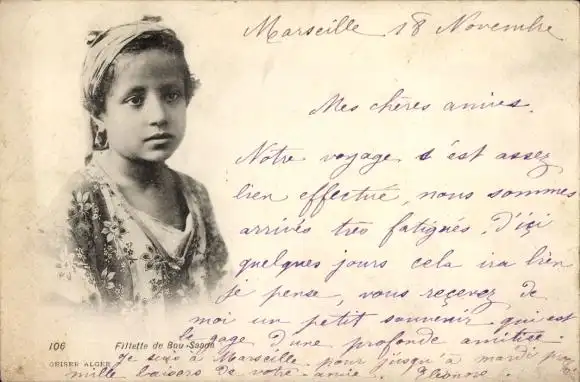 Marseille 18 Novembre
Mes chères amies.
Notre voyage s'est assez
bien effectué, nous sommes
arrivés très fatigués. d'içi
quelques jours cela ira bien
je pense, vous reçevez de
moi un petit souvenir qui est
le gage d'une profonde amitié.
106 Fillette de Bou-Saada
GEISER ALGER
Je suis à Marseille pour jusqu'à mardi
mille baisers de votre amie.